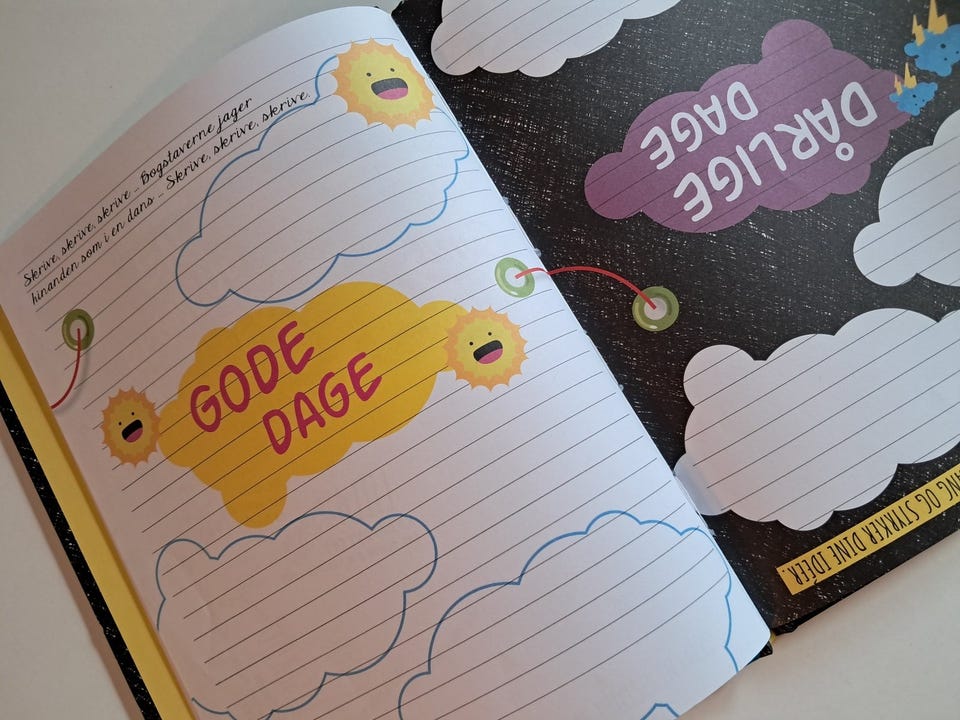 Skrive, skrive, skrive – Bogstaverne jager
hinanden som i en dans – Skrive, skrive, skrive.
GODE
DAGE
DÅRLIGE
DAGE
OG STYRKER DINE IDÉER.